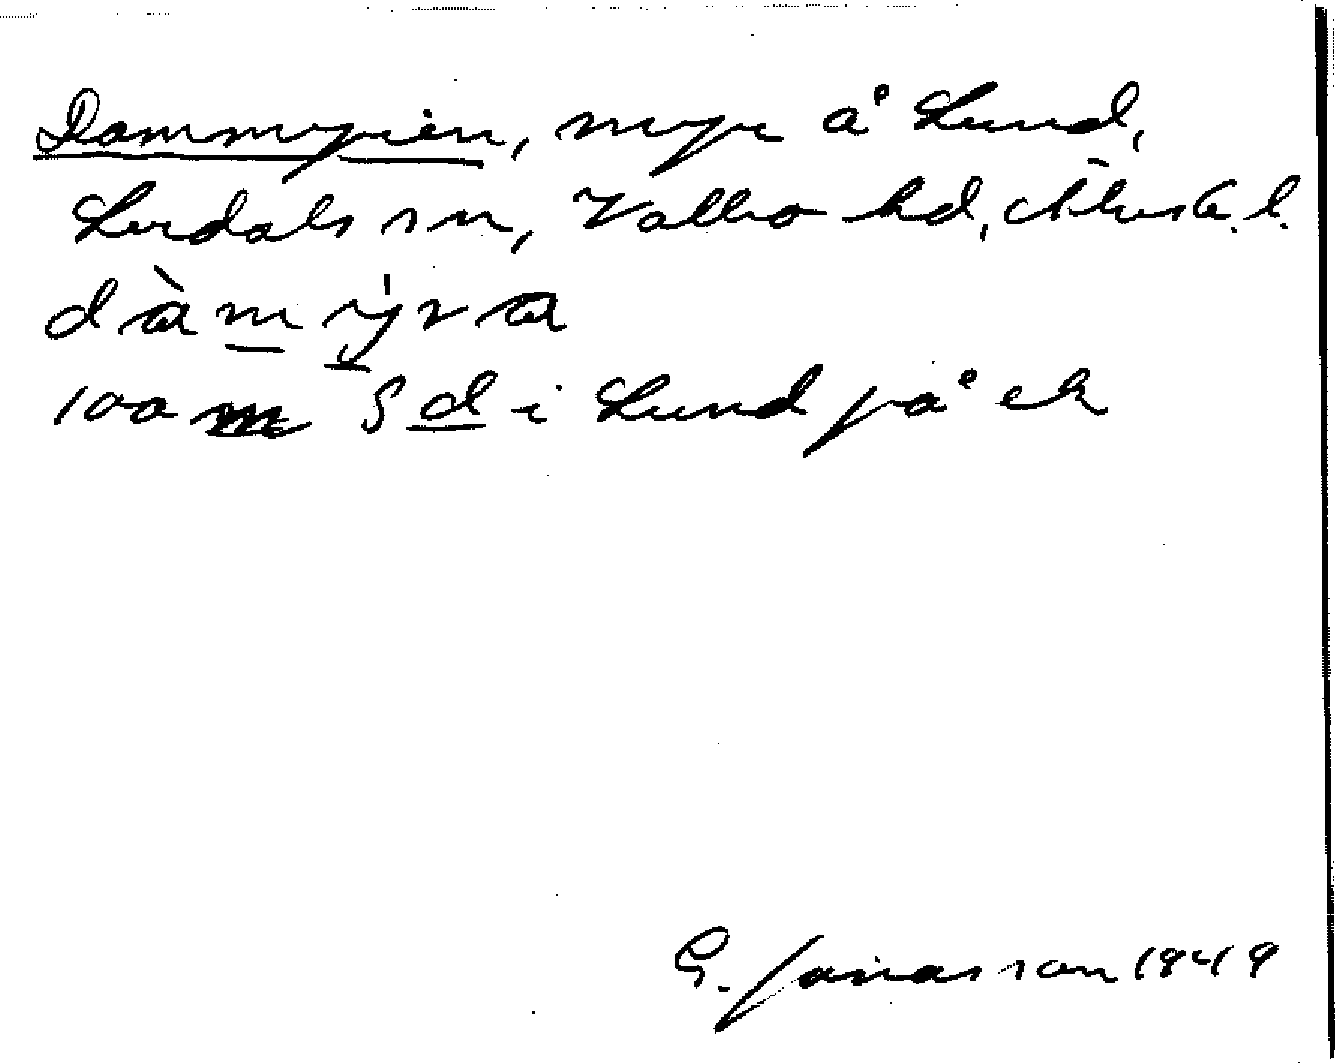 Dammyren, myr å Lund,
Lerdals sn, Valbo hd, Älvsb. l.
dàmy̍ra
100 m S d i Lund på ek
G. Jonasson 1949